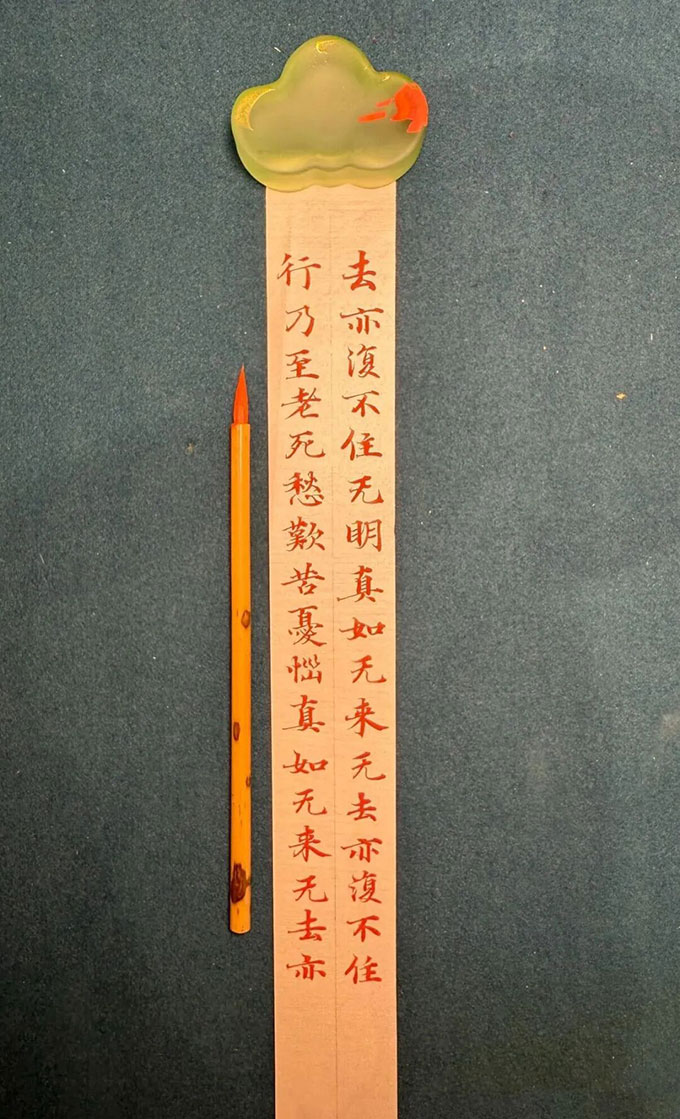 去亦復不住无明真如无来无去亦復不住
行乃至老死愁歎苦憂惱真如无来无去亦